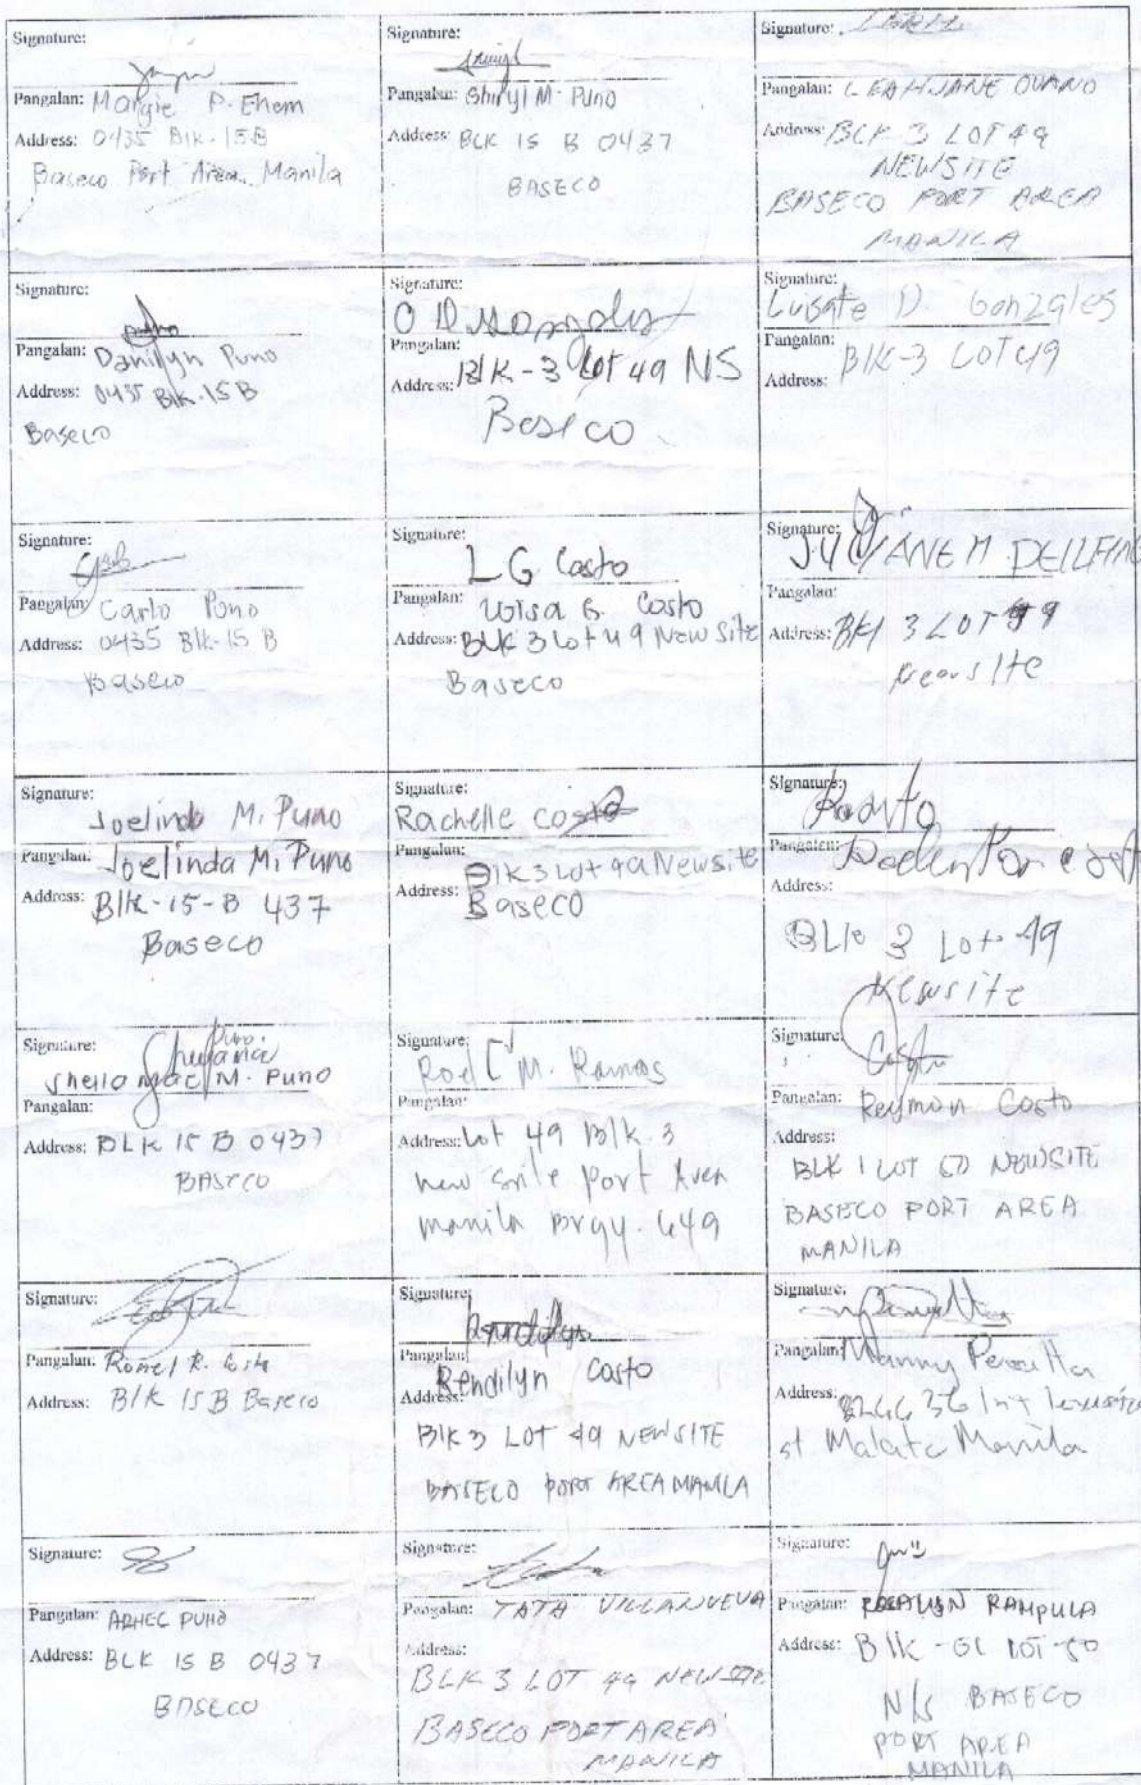 Signature:
Pangalan: Margie P. Enem
Address: 0435 Blk-15B
Baseco Port Area Manila
Signature:
Pangalan: Shiryl M. Puno
Address: BLK 15 B 0437
BASECO
Signature:
Pangalan: LEAHJANE OUANO
Address: BLK 3 LOT 49
NEWSITE
BASECO PORT AREA
MANILA
Signature:
Pangalan: Danilyn Puno
Address: 0435 Blk-15B
Baseco
Signature:
Pangalan:
Address: Blk-3 Lot 49 NS
Baseco
Signature:
Lusate D. Gonzales
Pangalan:
Address: Blk-3 LOT 49
Signature:
Pangalan: Carlo Puno
Address: 0435 Blk-15 B
Baseco
Signature:
L G Costo
Pangalan: Loisa G. Costo
Address: BLK 3 Lot 49 New Site
Baseco
Signature:
M DELLFINO
Pangalan:
Address: 3 LOT 49
Newsite
Signature:
Joelinda M. Puno
Pangalan: Joelinda M. Puno
Address: Blk-15-B 437
Baseco
Signature:
Rachelle Costo
Pangalan:
Blk 3 Lot 49 Newsite
Address: Baseco
Signature:
Pangalan:
Address:
BLK 3 Lot 49
Newsite
Signature:
Puno
M. Puno
Pangalan:
Address: BLK 15 B 0437
BASECO
Signature:
Roel M. Ramos
Pangalan:
Address: Lot 49 Blk-3
new Port Area
manila Brgy. 649
Signature:
Costo
Pangalan: Reymon Costo
Address:
BLK 1 LOT 50 NEWSITE
BASECO PORT AREA
MANILA
Signature:
Pangalan: Romel R. Costo
Address: Blk 15 B Baseco
Signature:
Pangalan:
Rendilyn Costo
Address:
Blk 3 LOT 49 NEWSITE
BASECO PORT AREA MANILA
Signature:
Pangalan: Manny Peralta
Address: 36 Int
st. Malate Manila
Signature:
Pangalan: ARNEL PUNO
Address: BLK 15 B 0437
BASECO
Signature:
Pangalan: TATA VILLANUEVA
Address:
BLK 3 LOT 49 NEWSITE
BASECO PORT AREA
MANILA
Signature:
Pangalan: RAMPULA
Address: Blk -01 LOT-50
N/S BASECO
PORT AREA
MANILA